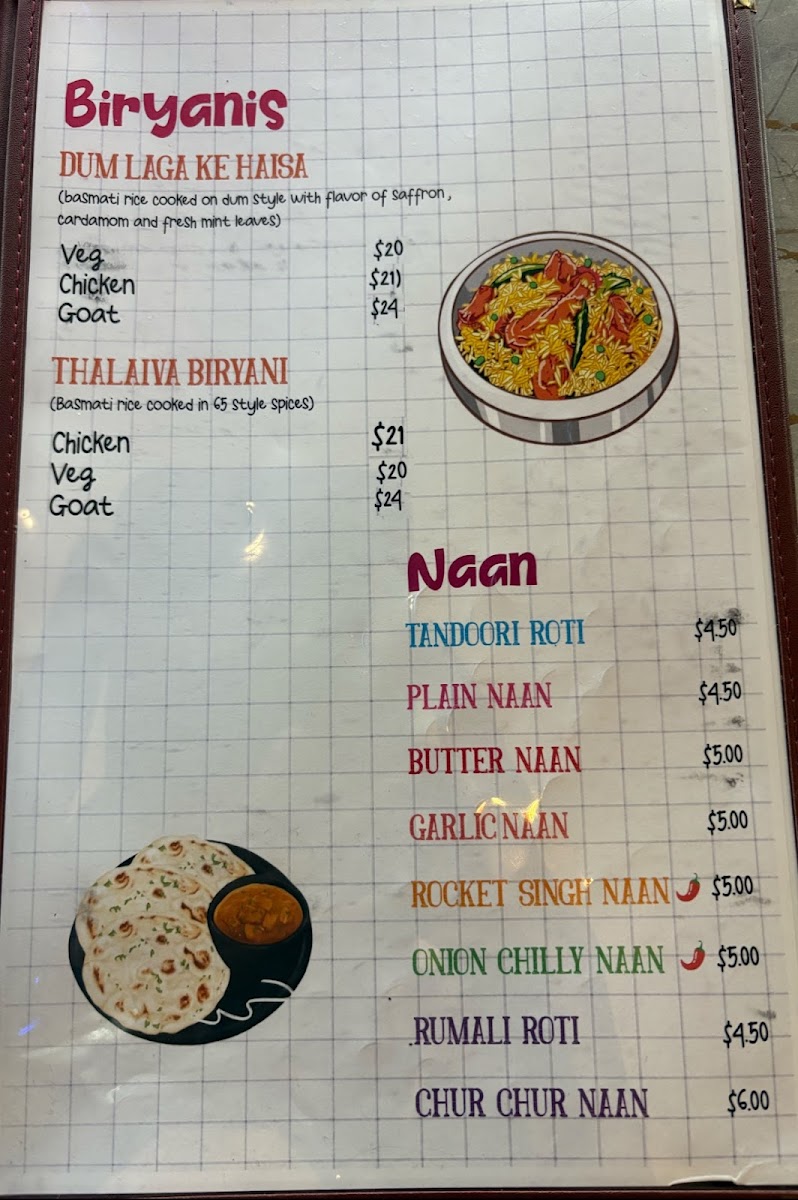 Biryanis
DUM LAGA KE HAISA
(basmati rice cooked on dum style with flavor of saffron,
cardamom and fresh mint leaves)
Veg $20
Chicken $21)
Goat $24
THALAIVA BIRYANI
(Basmati rice cooked in 65 style spices)
Chicken $21
Veg $20
Goat $24
Naan
TANDOORI ROTI $4.50
PLAIN NAAN $4.50
BUTTER NAAN $5.00
GARLIC NAAN $5.00
ROCKET SINGH NAAN $5.00
ONION CHILLY NAAN $5.00
.RUMALI ROTI $4.50
CHUR CHUR NAAN $6.00